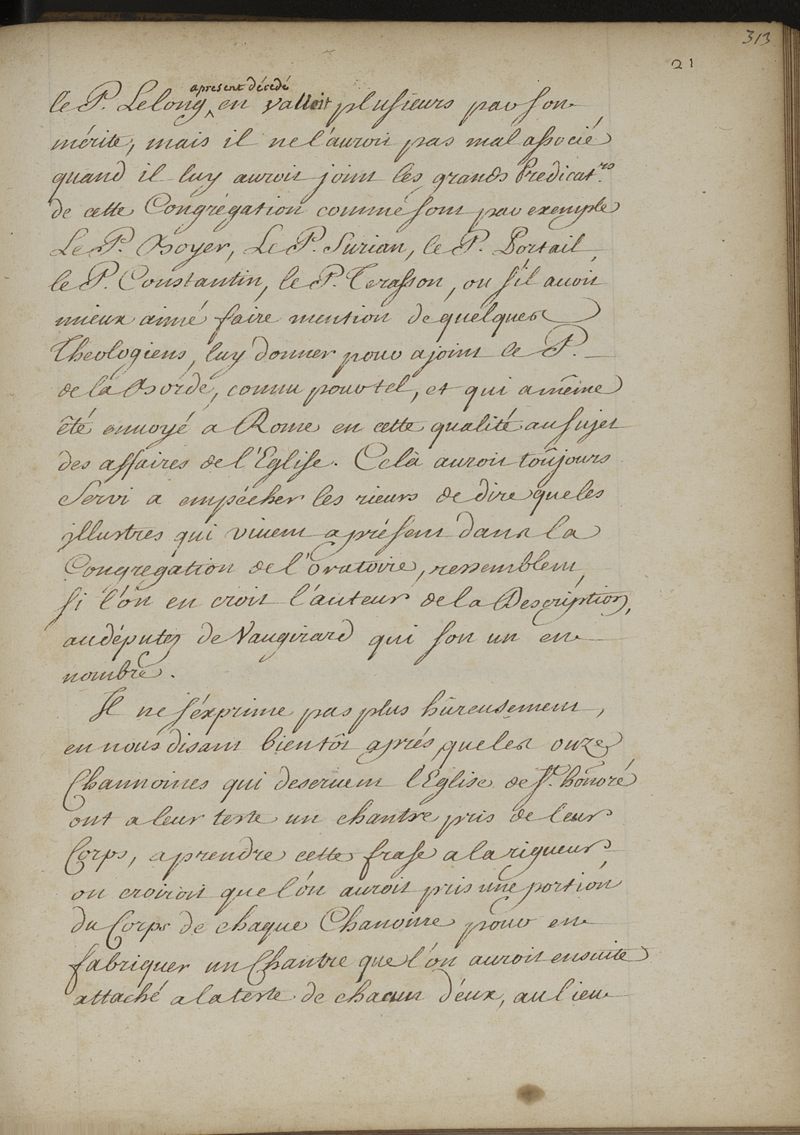 313
21
apresent décédé
le P. Lelong en valloit plusieurs par son
mérite, mais il ne l'auroit pas mal associé
quand il luy auroit joint les grands Predicat.rs
de cette Congrégation comme sont par exemple
Le P. Boyer, Le P. Surian, le P. Portail,
le P. Constantin, le P. Terasson, ou s'il avoit
mieux aimé faire mention de quelques
Theologiens, luy donner pour ajoint le P.
de la Borde, connu pour tel, et qui a même
êté envoyé a Rome en cette qualité au sujet
des affaires de l'Eglise. Celà auroit toûjours
Servi a empécher les rieurs de dire que les
illustres qui vivent aprésent dans la
Congregation de l'oratoire, ressemblent,
si l'on en croit l'auteur de la Description,
au députez de Vaugirard qui son un en
nombre.
Il ne s'éxprime pas plus hûreusement,
en nous disant bientôt aprés, que les onze
Channoines qui deservent l'Église de St. honoré
ont a leur teste un chantre pris de leur
Corps, a prendre cette frase a la rigueur
on croiroit que l'on auroit pris une portion
du Corps de chaque Chanoine pour en
fabriquer un Chantre que l'on auroit ensuite
attaché a la teste de chacun d'eux, au lieu